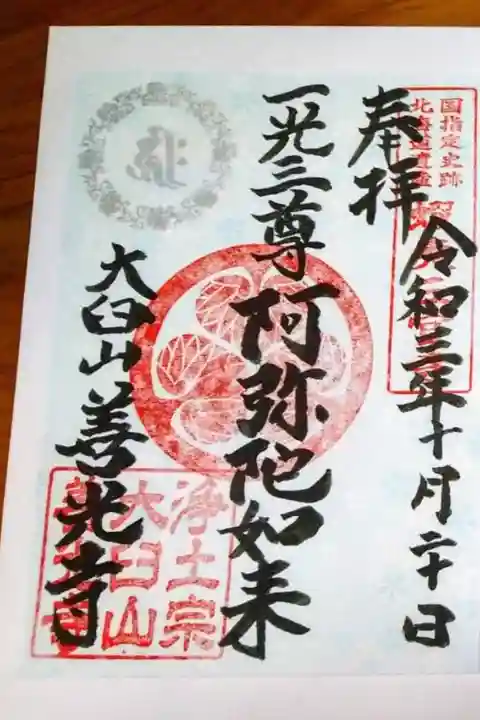 奉拝
令和三年十月二十日
国指定史跡
北海道遺産
一光三尊 阿弥陀如来
大臼山 善光寺
浄土宗
大臼山
善光寺